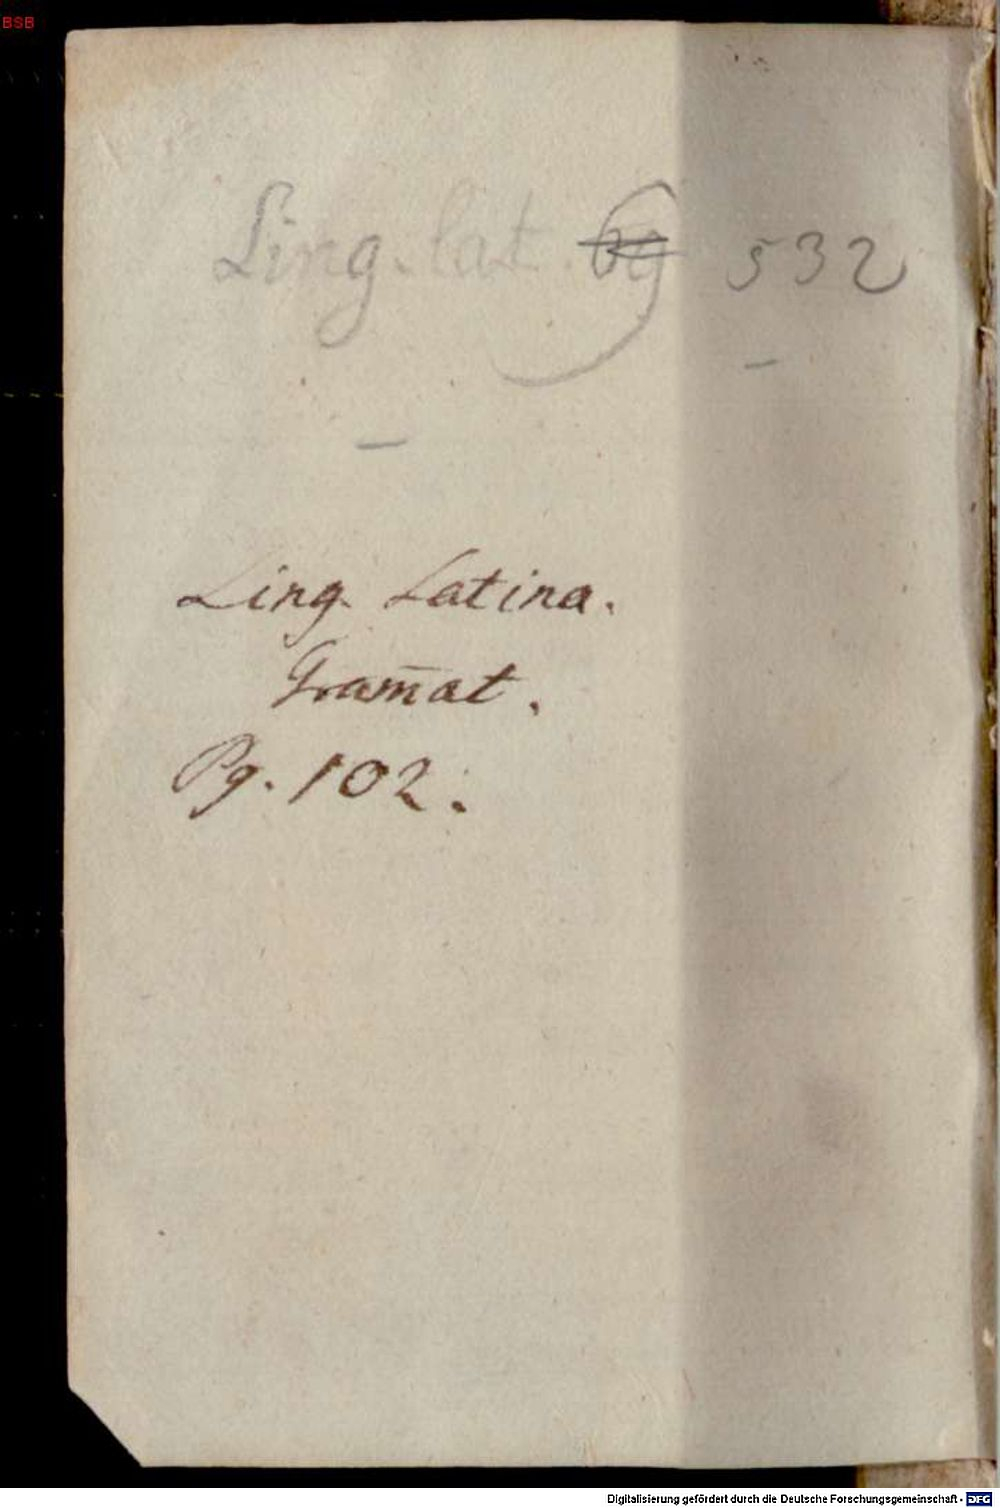 BSB
Ling. lat. 69 532
Ling. Latina.
Gram̄at.
Pg. 102.
Digitalisierung gefördert durch die Deutsche Forschungsgemeinschaft - DFG